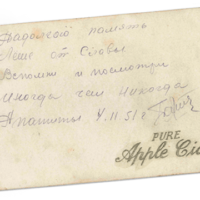 На долгую память
Леше от Сювы
Вспомни и посмотри
Иногда чем никогда
Апатиты 4.II.51г
PURE
Apple Ci